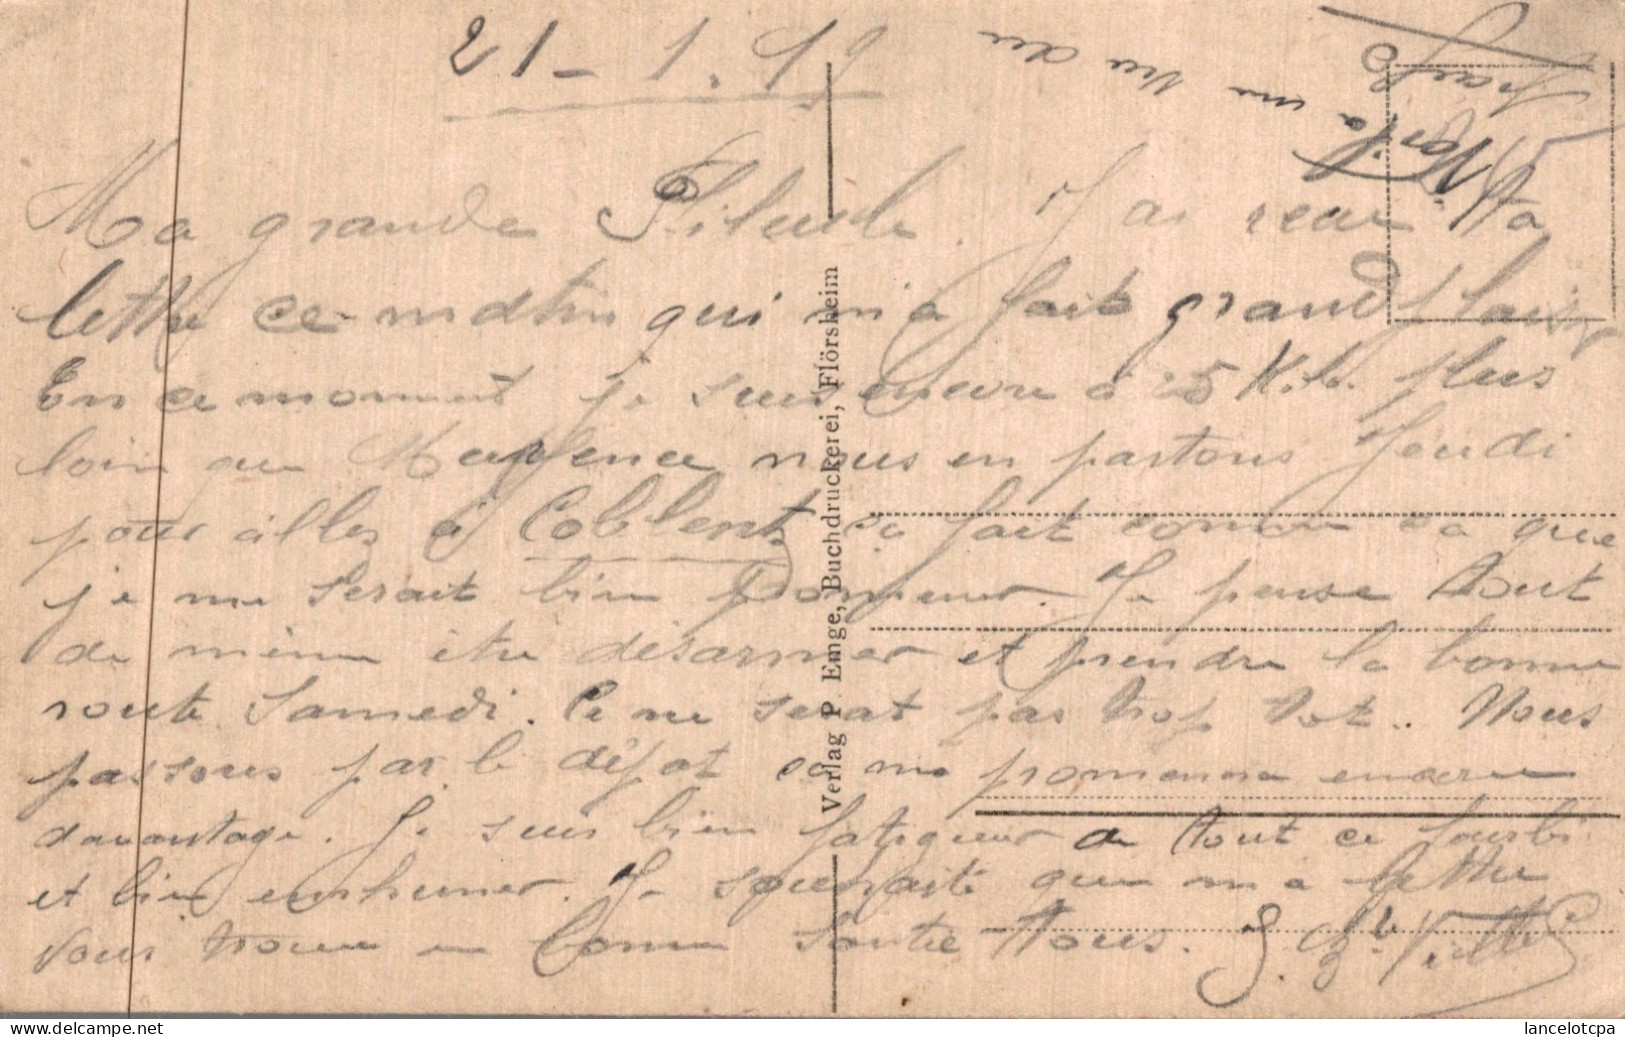 21-1.19
Voila une vue du
Ma grande J'ai recu ta
lettre ce matin qui m'a fait grand plaisir
En ce moment je suis encore à 25 K.m. plus
loin que Mayence nous en partons Jeudi
pour alles à Coblentz ca fait comme ca que
je me serait bien promener. Je pense tout
de même être désarmer et prendre la bonne
route Samedi. Ce ne serat pas trop tot.. Nous
passons par le dépot ca me promenera encore
davantage. Je suis bien fatiguer de tout ce fourbi
et bien enrhumer. Je souhaite que ma lettre
vous trouve en bonne santé tous.
Verlag P. Emge, Buchdruckerei, Flörsheim
lancelotcpa